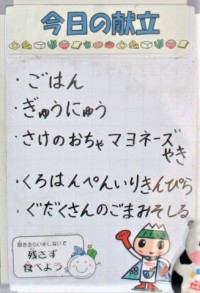 今日の献立
・ごはん
・ぎゅうにゅう
・さけのおちゃマヨネーズ
やき
・くろはんぺんいりきんぴら
・ぐだくさんのごまみそしる
好ききらいをしないで
残さず
食べよう。